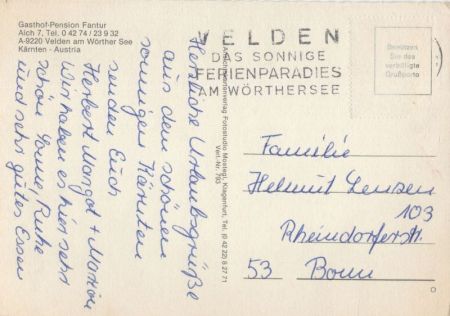 Gasthof-Pension Fantur
Aich 7, Tel. 0 42 74 / 23 9 32
A-9220 Velden am Wörther See
Kärnten - Austria
VELDEN
DAS SONNIGE
FERIENPARADIES
AM WÖRTHERSEE
Benützen
Sie das
verbilligte
Grußporto
Herzliche Urlaubsgrüße
aus dem schönen
sonnigen Kärnten
senden Euch
Herbert Margot + Marion
Wir haben es hier sehr
schön Sonne, Ruhe
und sehr gutes Essen
Fotostudio
Klagenfurt, Tel. (0 42 22) 8 27 71
Verl.-Nr. 793
Familie
Helmut Lenzen
103
Rheindorferstr.
53 Bonn